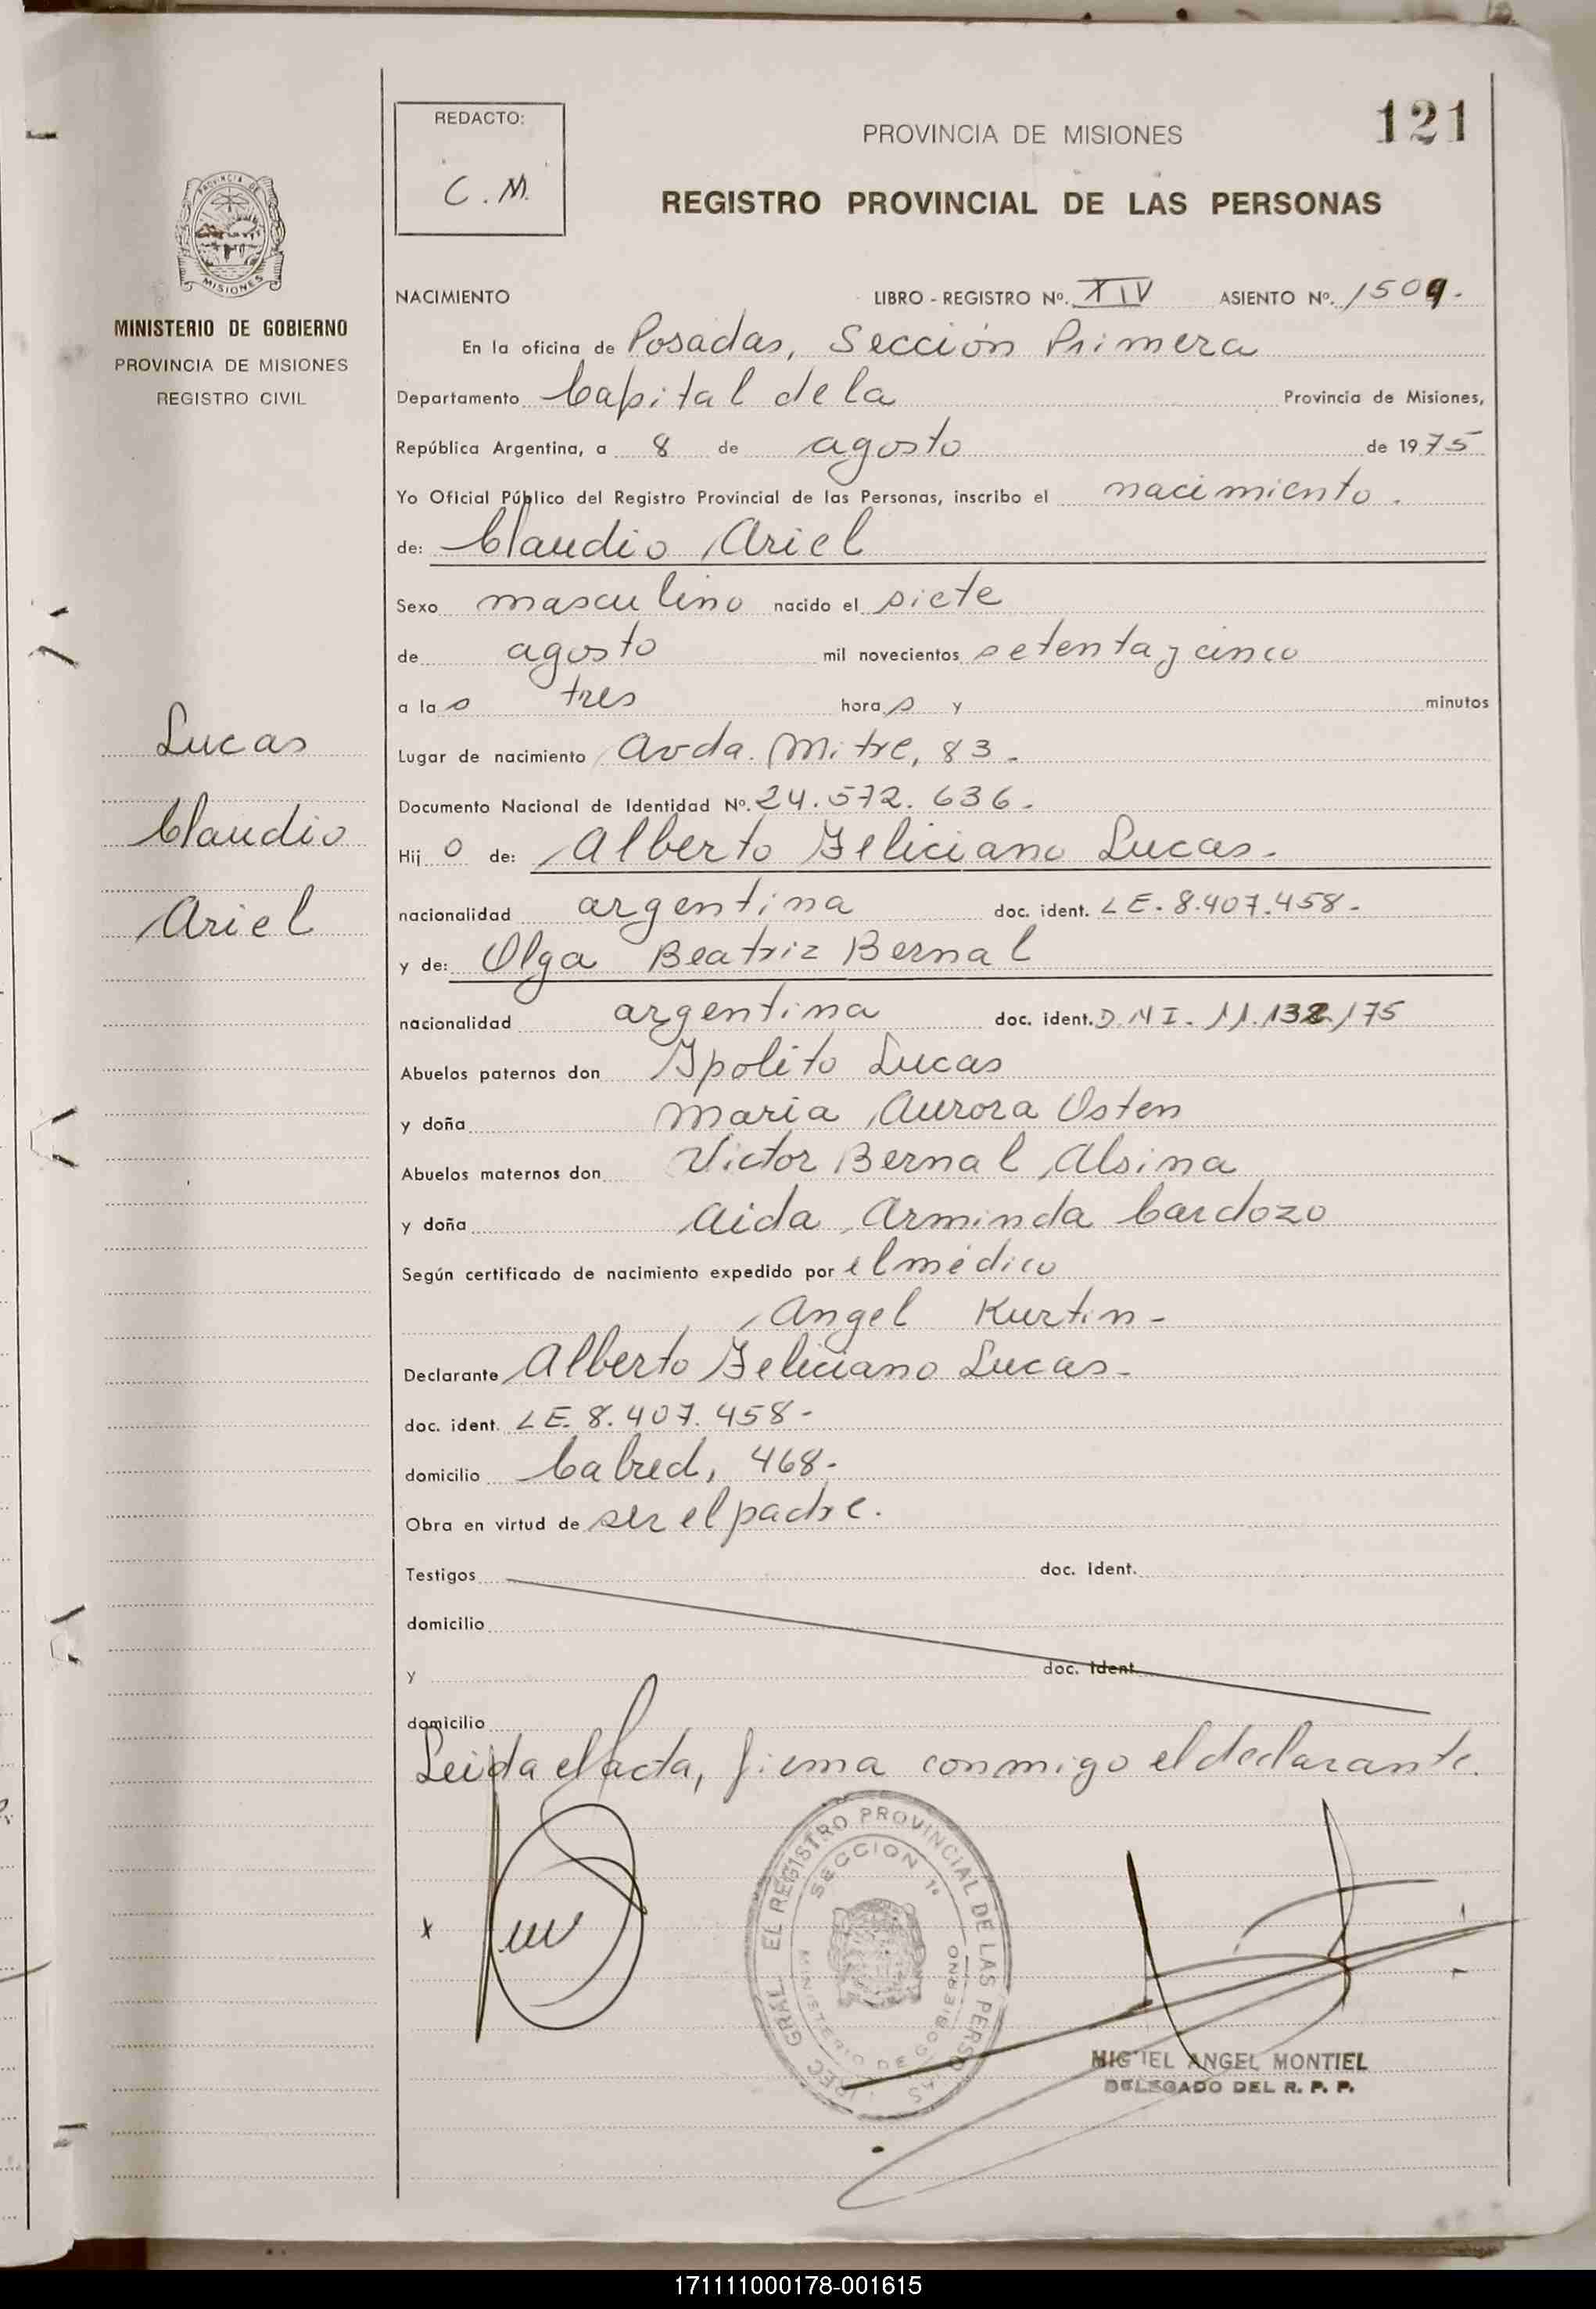 121
REDACTO:
C. M.
PROVINCIA DE MISIONES
REGISTRO PROVINCIAL DE LAS PERSONAS
PROVINCIA DE
MISIONES
MINISTERIO DE GOBIERNO
PROVINCIA DE MISIONES
REGISTRO CIVIL
Lucas
Claudio
Ariel
NACIMIENTO LIBRO - REGISTRO Nº. XIV ASIENTO Nº. 1509.
En la oficina de Posadas, Sección Primera
Departamento Capital de la Provincia de Misiones,
República Argentina, a 8 de agosto de 1975
Yo Oficial Público del Registro Provincial de las Personas, inscribo el nacimiento.
de: Claudio Ariel
Sexo masculino nacido el siete
de agosto mil novecientos setenta y cinco
a las tres horas y minutos
Lugar de nacimiento Avda. Mitre, 83.
Documento Nacional de Identidad Nº. 24.572.636.
Hijo de: Alberto Feliciano Lucas.
nacionalidad argentina doc. ident. LE. 8.407.458.
y de: Olga Beatriz Bernal
nacionalidad argentina doc. ident. D.N I. 11.132.175
Abuelos paternos don Ipolito Lucas
y doña Maria Aurora Osten
Abuelos maternos don Victor Bernal Alsina
y doña Aida Arminda Cardozo
Según certificado de nacimiento expedido por el médico
Angel Kurtin.
Declarante Alberto Feliciano Lucas.
doc. ident. LE. 8.407.458.
domicilio Cabred, 468.
Obra en virtud de ser el padre.
Testigos doc. ident.
domicilio
y doc. ident.
domicilio
Leida el acta, firma conmigo el declarante.
x
DIREC. GRAL. EL REGISTRO PROVINCIAL DE LAS PERSONAS
SECCION 1ª
MINISTERIO DE GOBIERNO
MIGUEL ANGEL MONTIEL
DELEGADO DEL R. P. P.
171111000178-001615